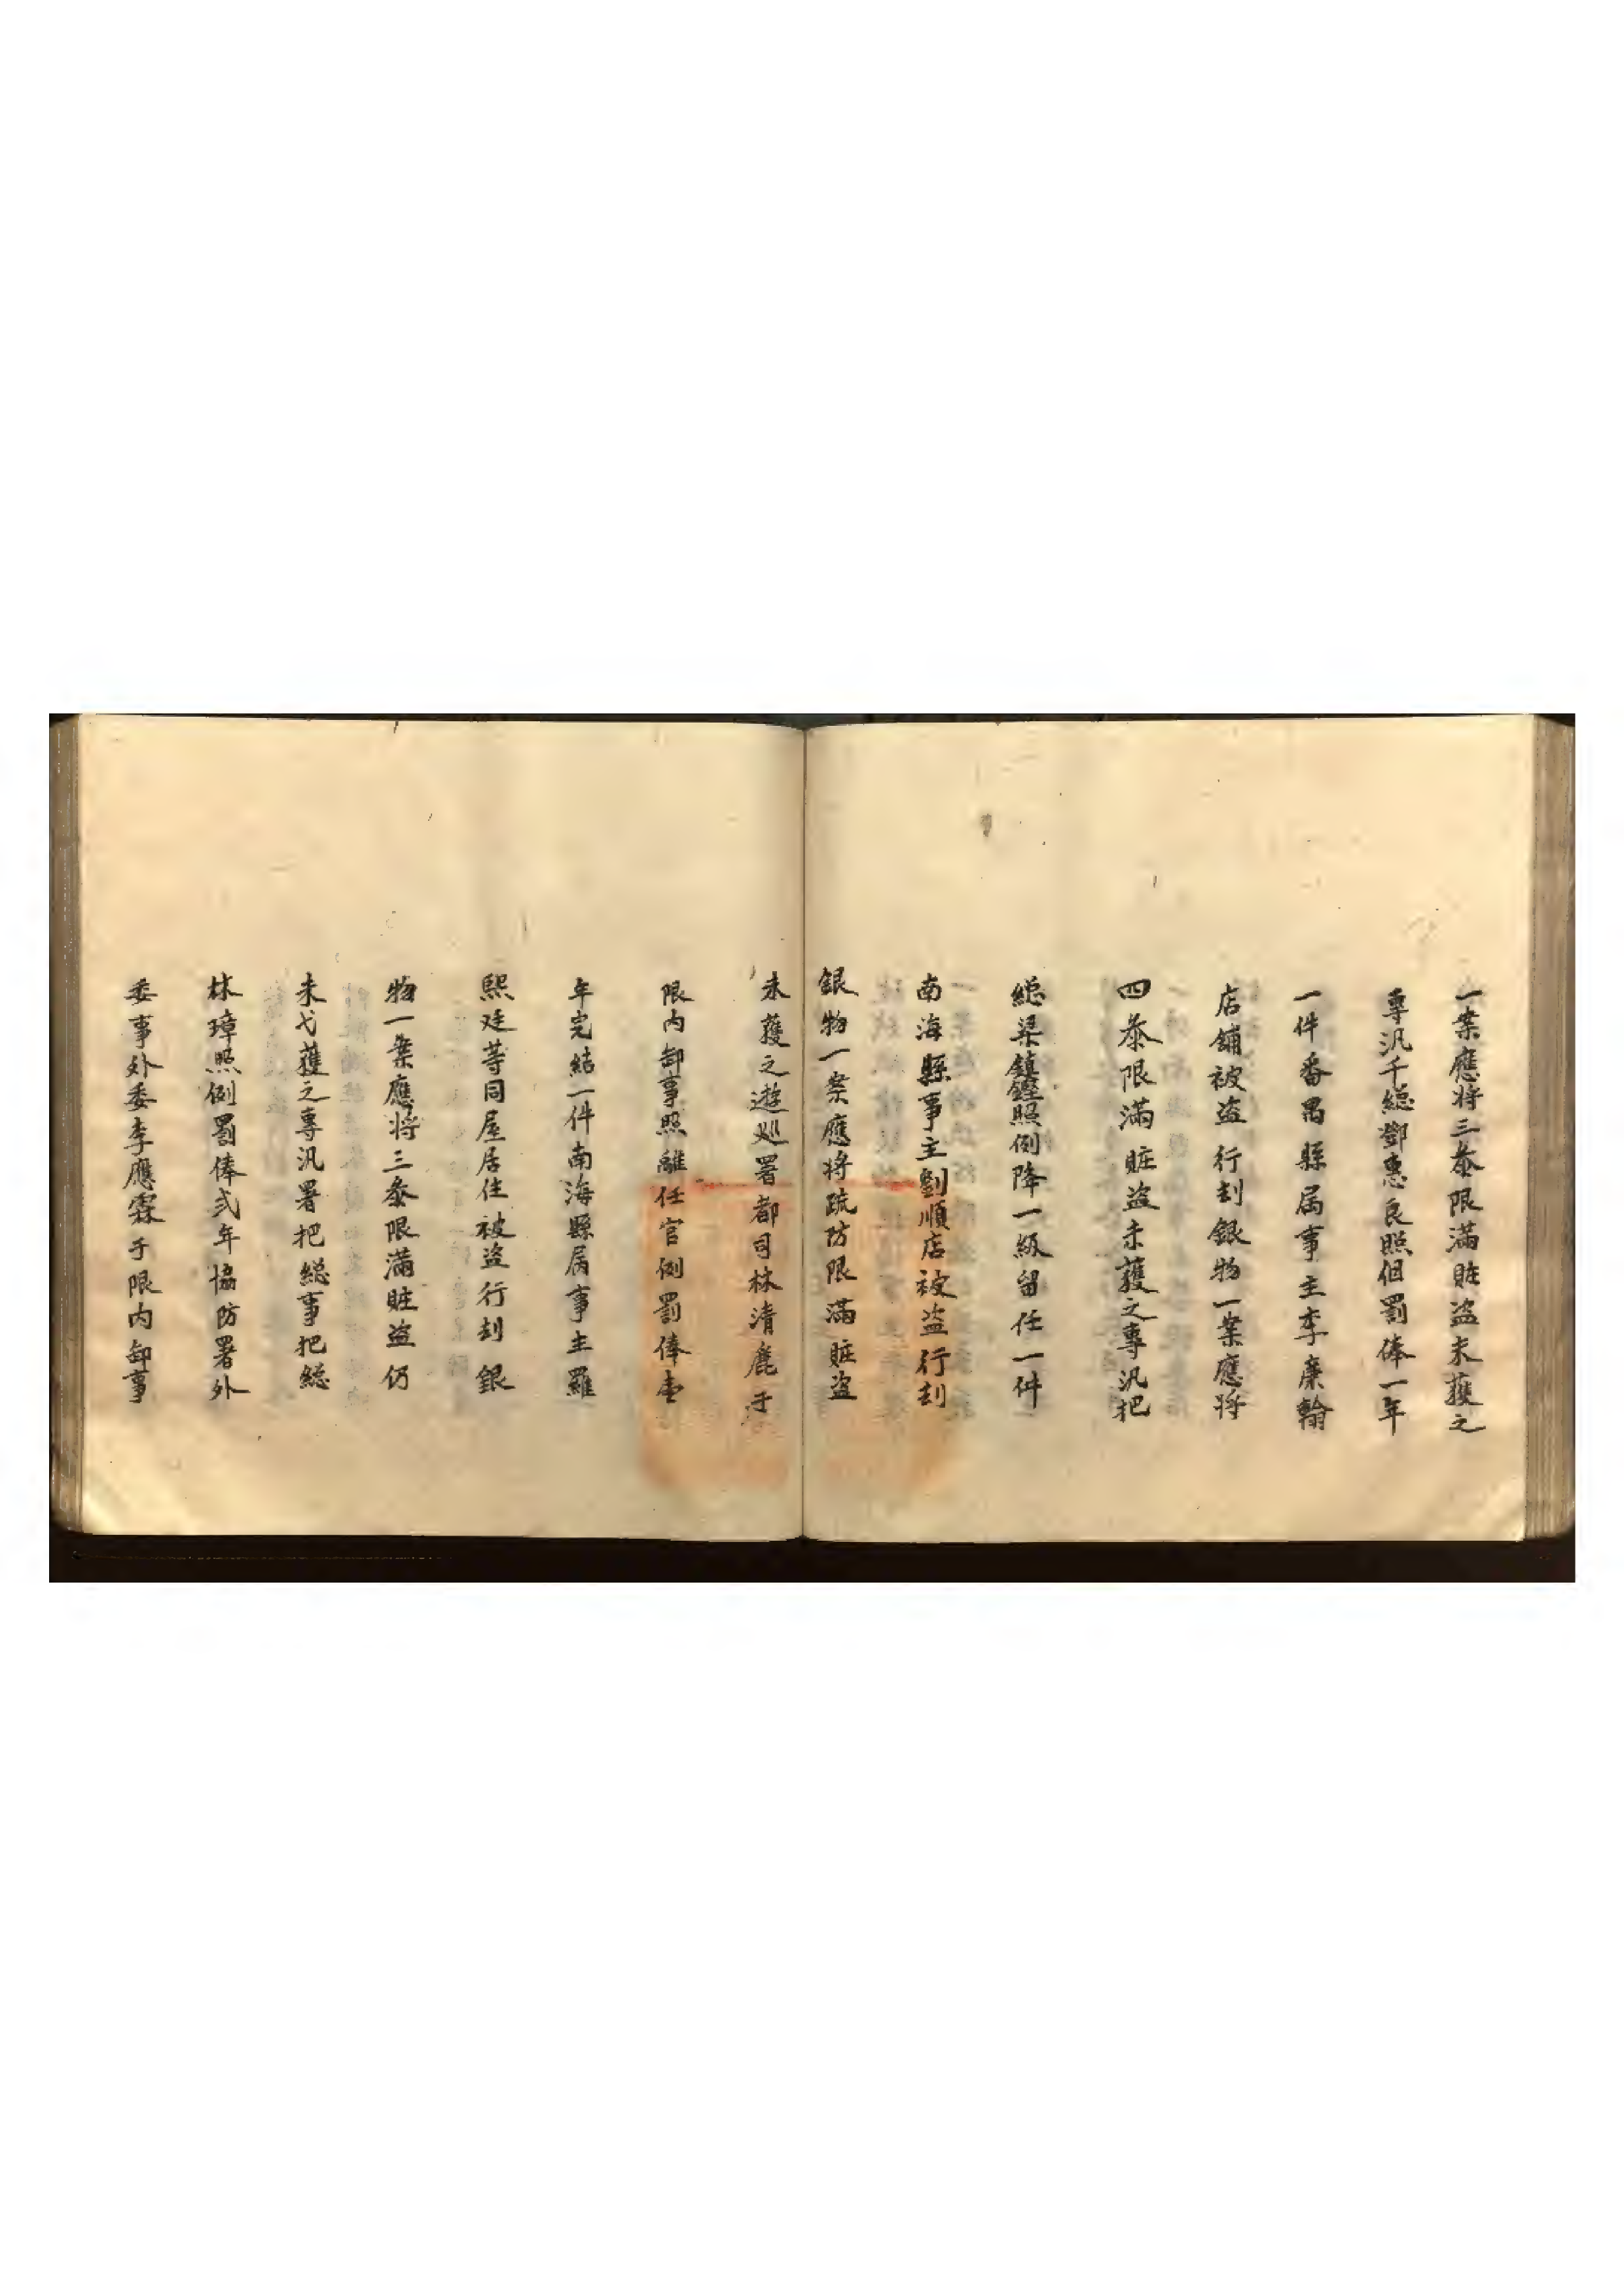 一案應将三叅限滿賍盗未獲之
專汛千総鄧惠良照但罰俸一年
一件番禺縣属事主李廉翰
店舖被盗行刦銀物一案應将
四叅限滿賍盗未獲之專汛把
総梁鎮鏗照例降一級留任一件
南海縣事主劉順店被盗行刦
銀物一案應将疏防限滿賍盗
未獲之遊廵署都司林清鹿于
限内卸事照離任官例罰俸壱
年完結一件南海縣属事主羅
熙廷等同屋居住被盗行刦銀
物一案應将三叅限滿賍盗仍
未弋獲之專汛署把総事把総
林璋照例罰俸弍年協防署外
委事外委李應霖于限内卸事